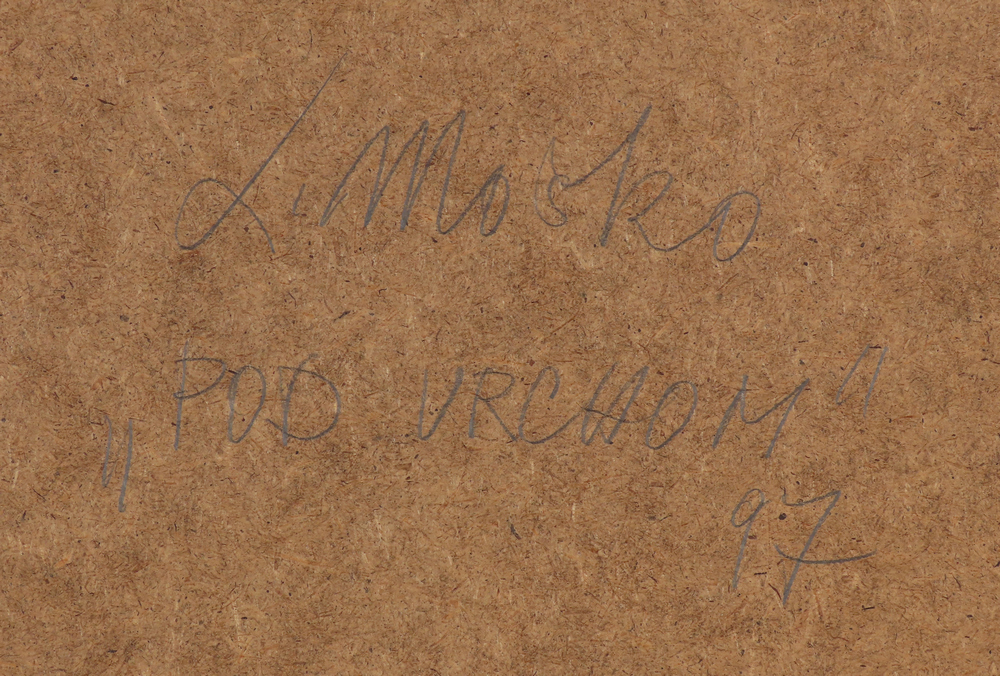 L. Moško
„POD VRCHOM"
97